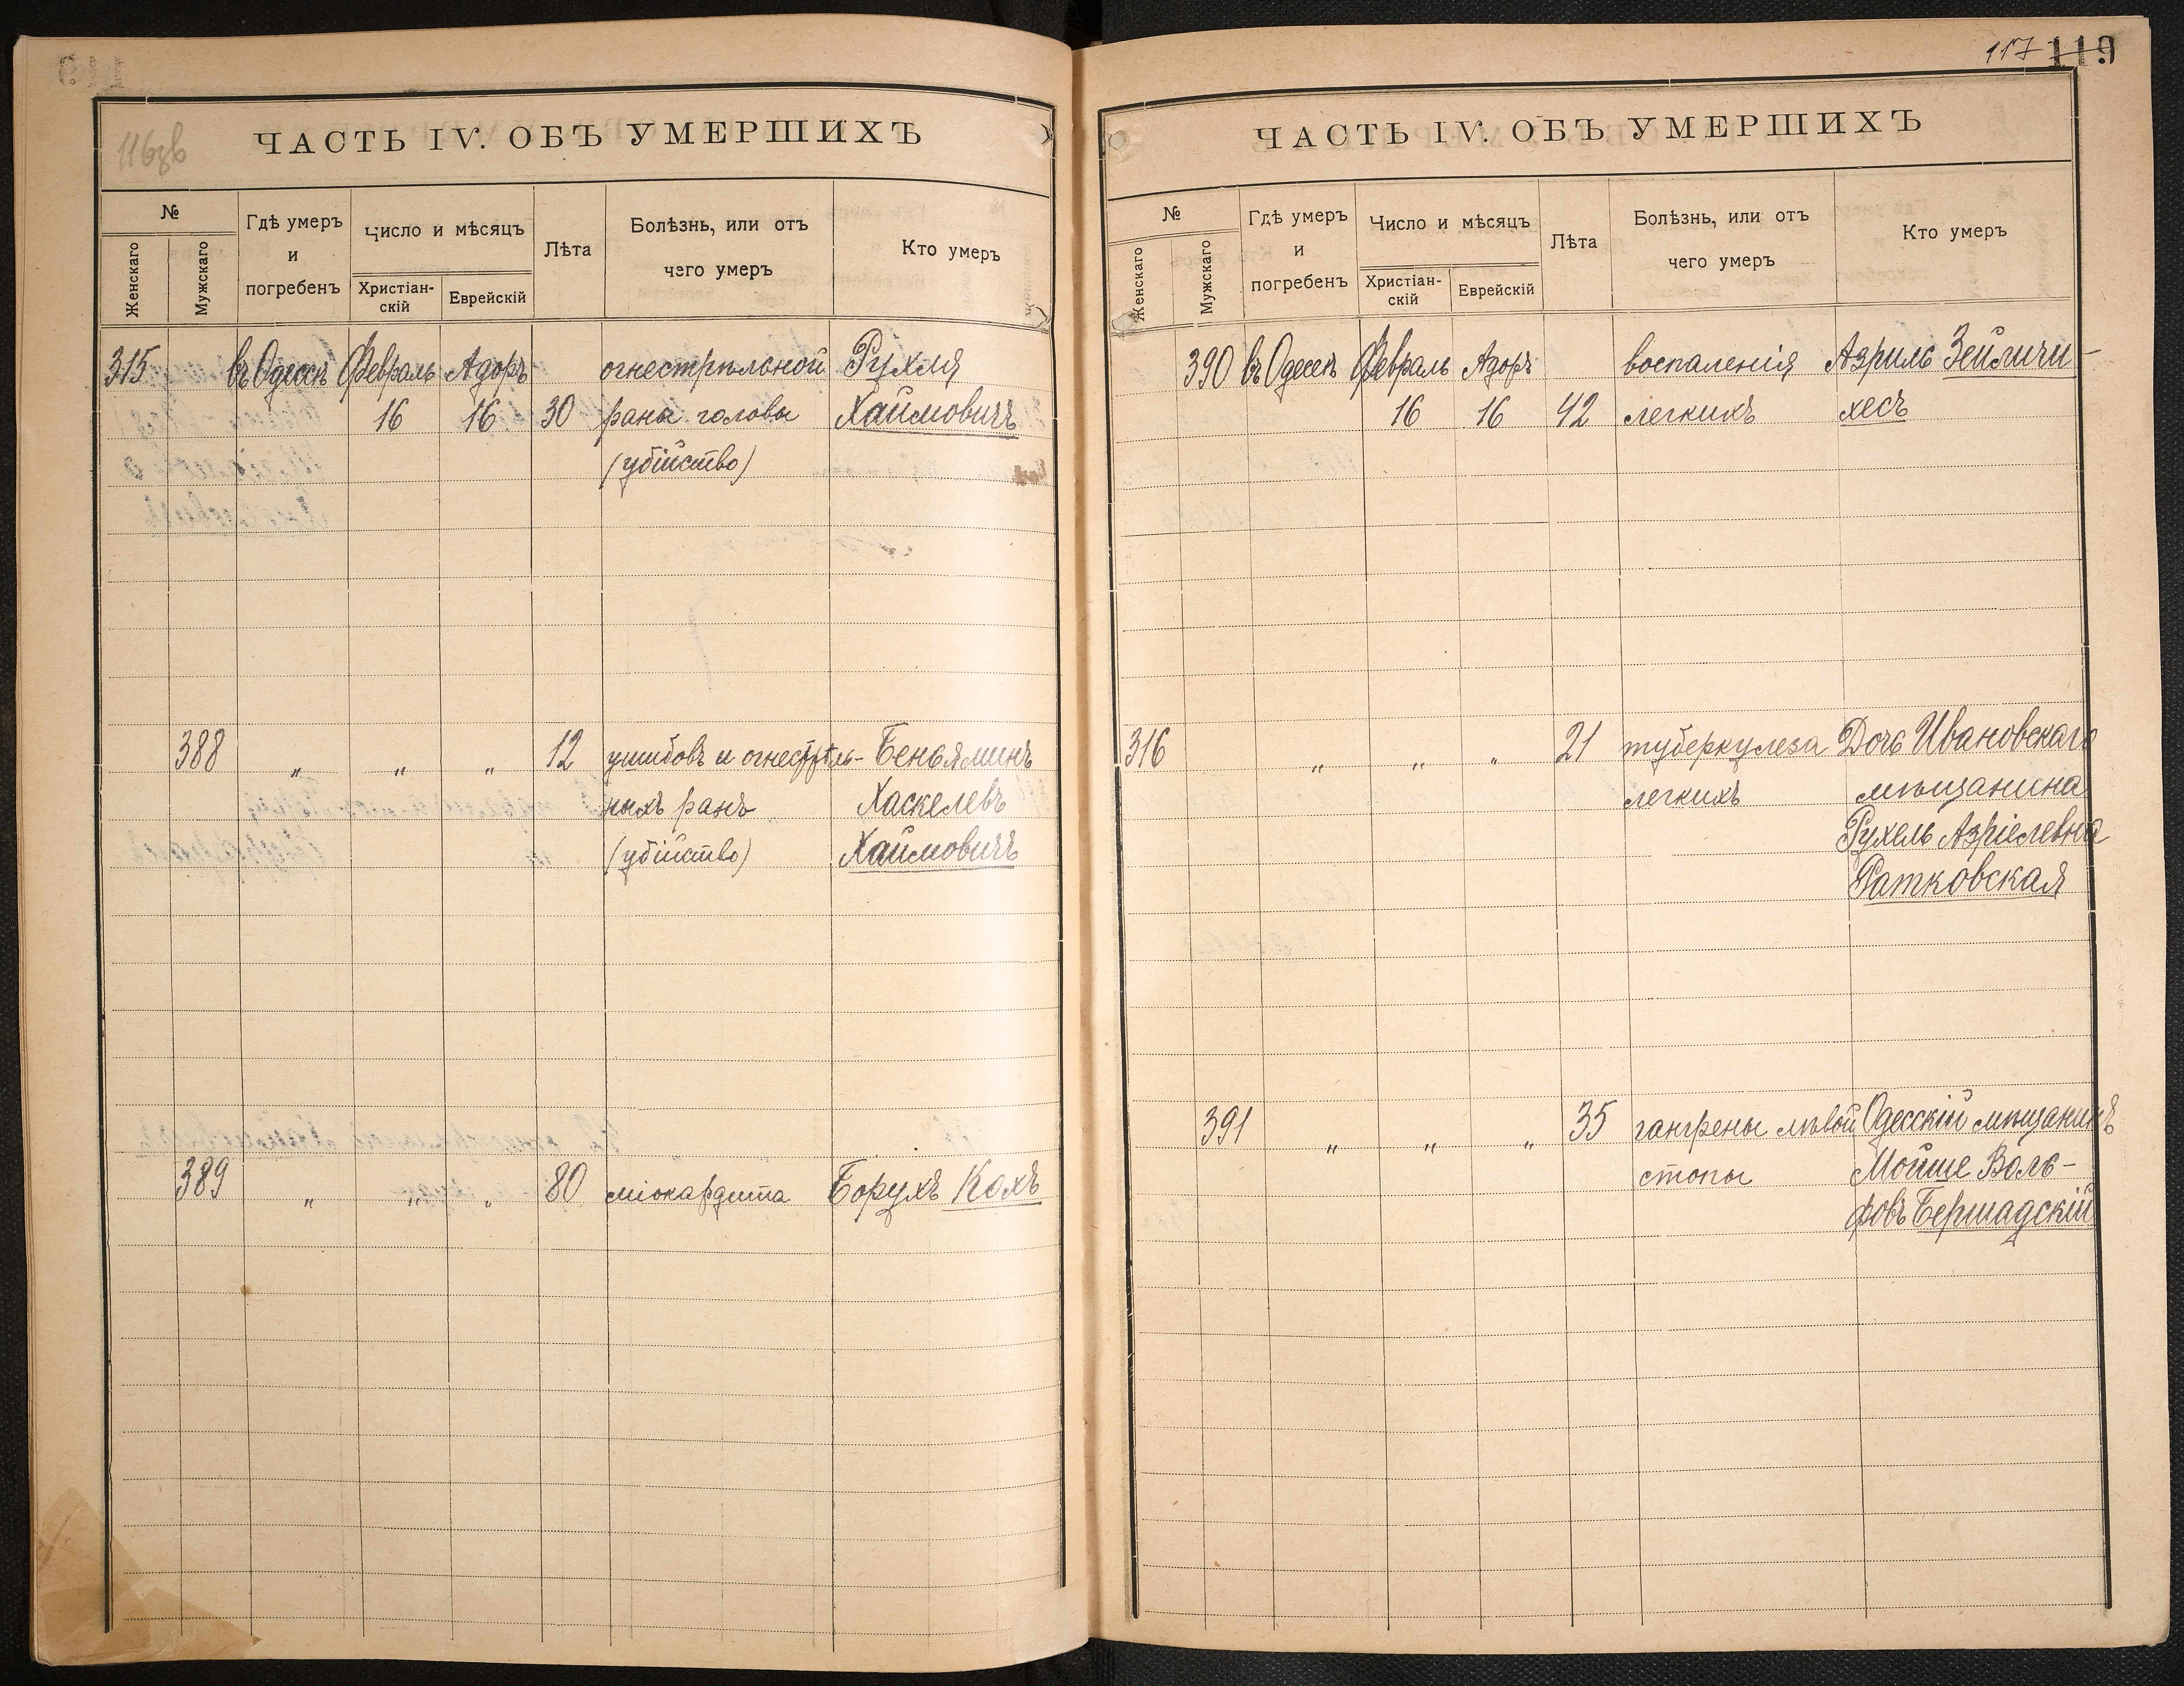 116зв
ЧАСТЬ IV. ОБЪ УМЕРШИХЪ
№
Женскаго
Мужскаго
Гдѣ умеръ
и
погребенъ
Число и мѣсяцъ
Христіан-
скій
Еврейскій
Лѣта
Болѣзнь, или отъ
чего умеръ
Кто умеръ
315 въ Одессѣ Февраль Адоръ огнестрѣльной Рухля
16 16 30 раны головы Хаимовичъ
(убійство)
388 „ „ „ 12 ушибовъ и огнестрѣль- Беньяминъ
ныхъ ранъ Хаскелевъ
(убійство) Хаимовичъ
389 „ „ „ 80 міокардита Борухъ Кохъ
117 119
ЧАСТЬ IV. ОБЪ УМЕРШИХЪ
№
Женскаго
Мужскаго
Гдѣ умеръ
и
погребенъ
Число и мѣсяцъ
Христіан-
скій
Еврейскій
Лѣта
Болѣзнь, или отъ
чего умеръ
Кто умеръ
390 въ Одессѣ Февраль Адоръ воспаленія Азриль Зейличи-
16 16 42 легкихъ хесъ
316 „ „ „ 21 туберкулеза Дочь Ивановскаго
легкихъ мѣщанина
Рухель Азріелевна
Ратковская
391 „ „ „ 35 гангрены лѣвой Одесскій мѣщанинъ
стопы Мойше Воль-
фовъ Бершадскій